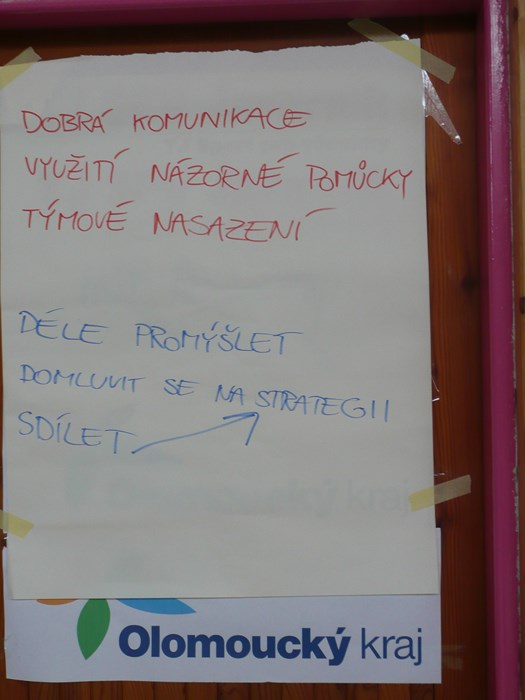 DOBRÁ KOMUNIKACE
VYUŽITÍ NÁZORNÉ POMŮCKY
TÝMOVÉ NASAZENÍ
DÉLE PROMÝŠLET
DOMLUVIT SE NA STRATEGII
SDÍLET
Olomoucký kraj
Olomoucký kraj